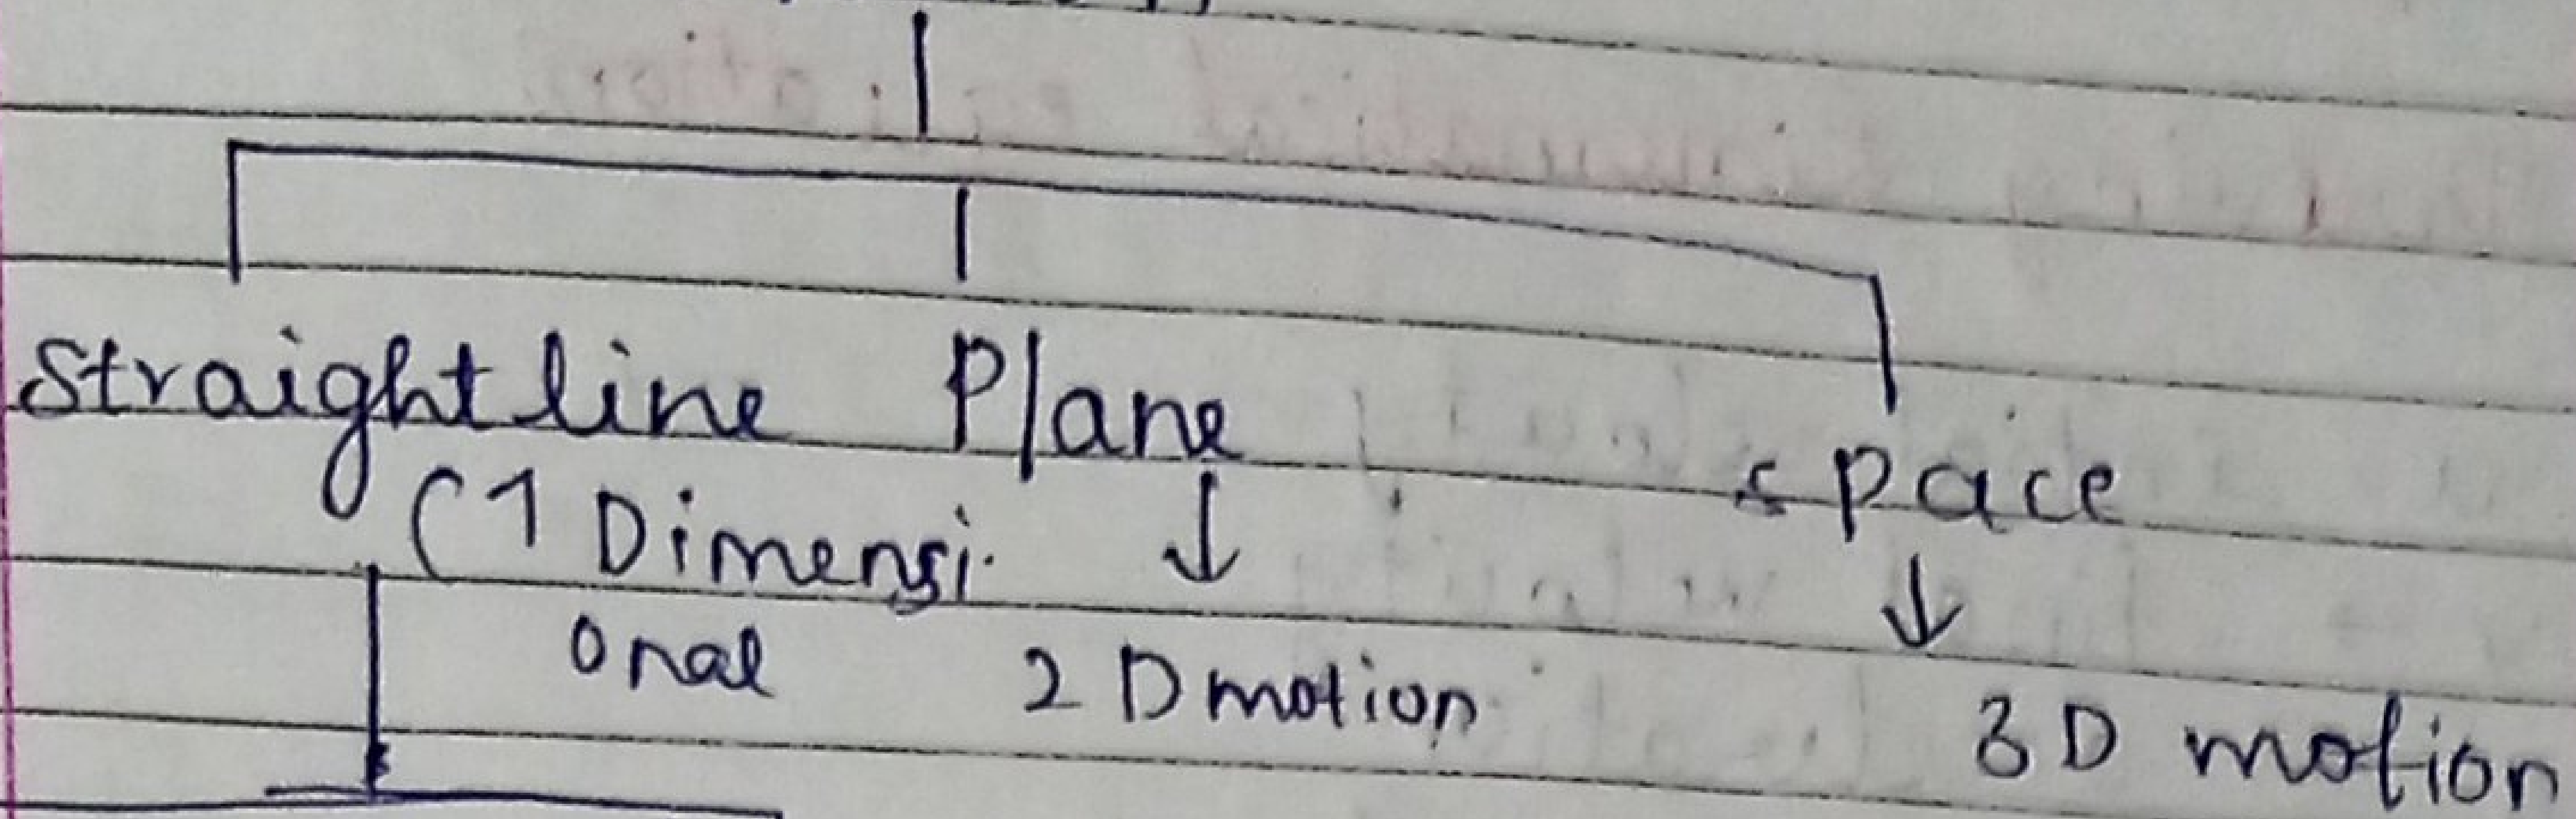 Straight line Plane
space
(1 Dimensi
onal
2 D motion
3 D motion